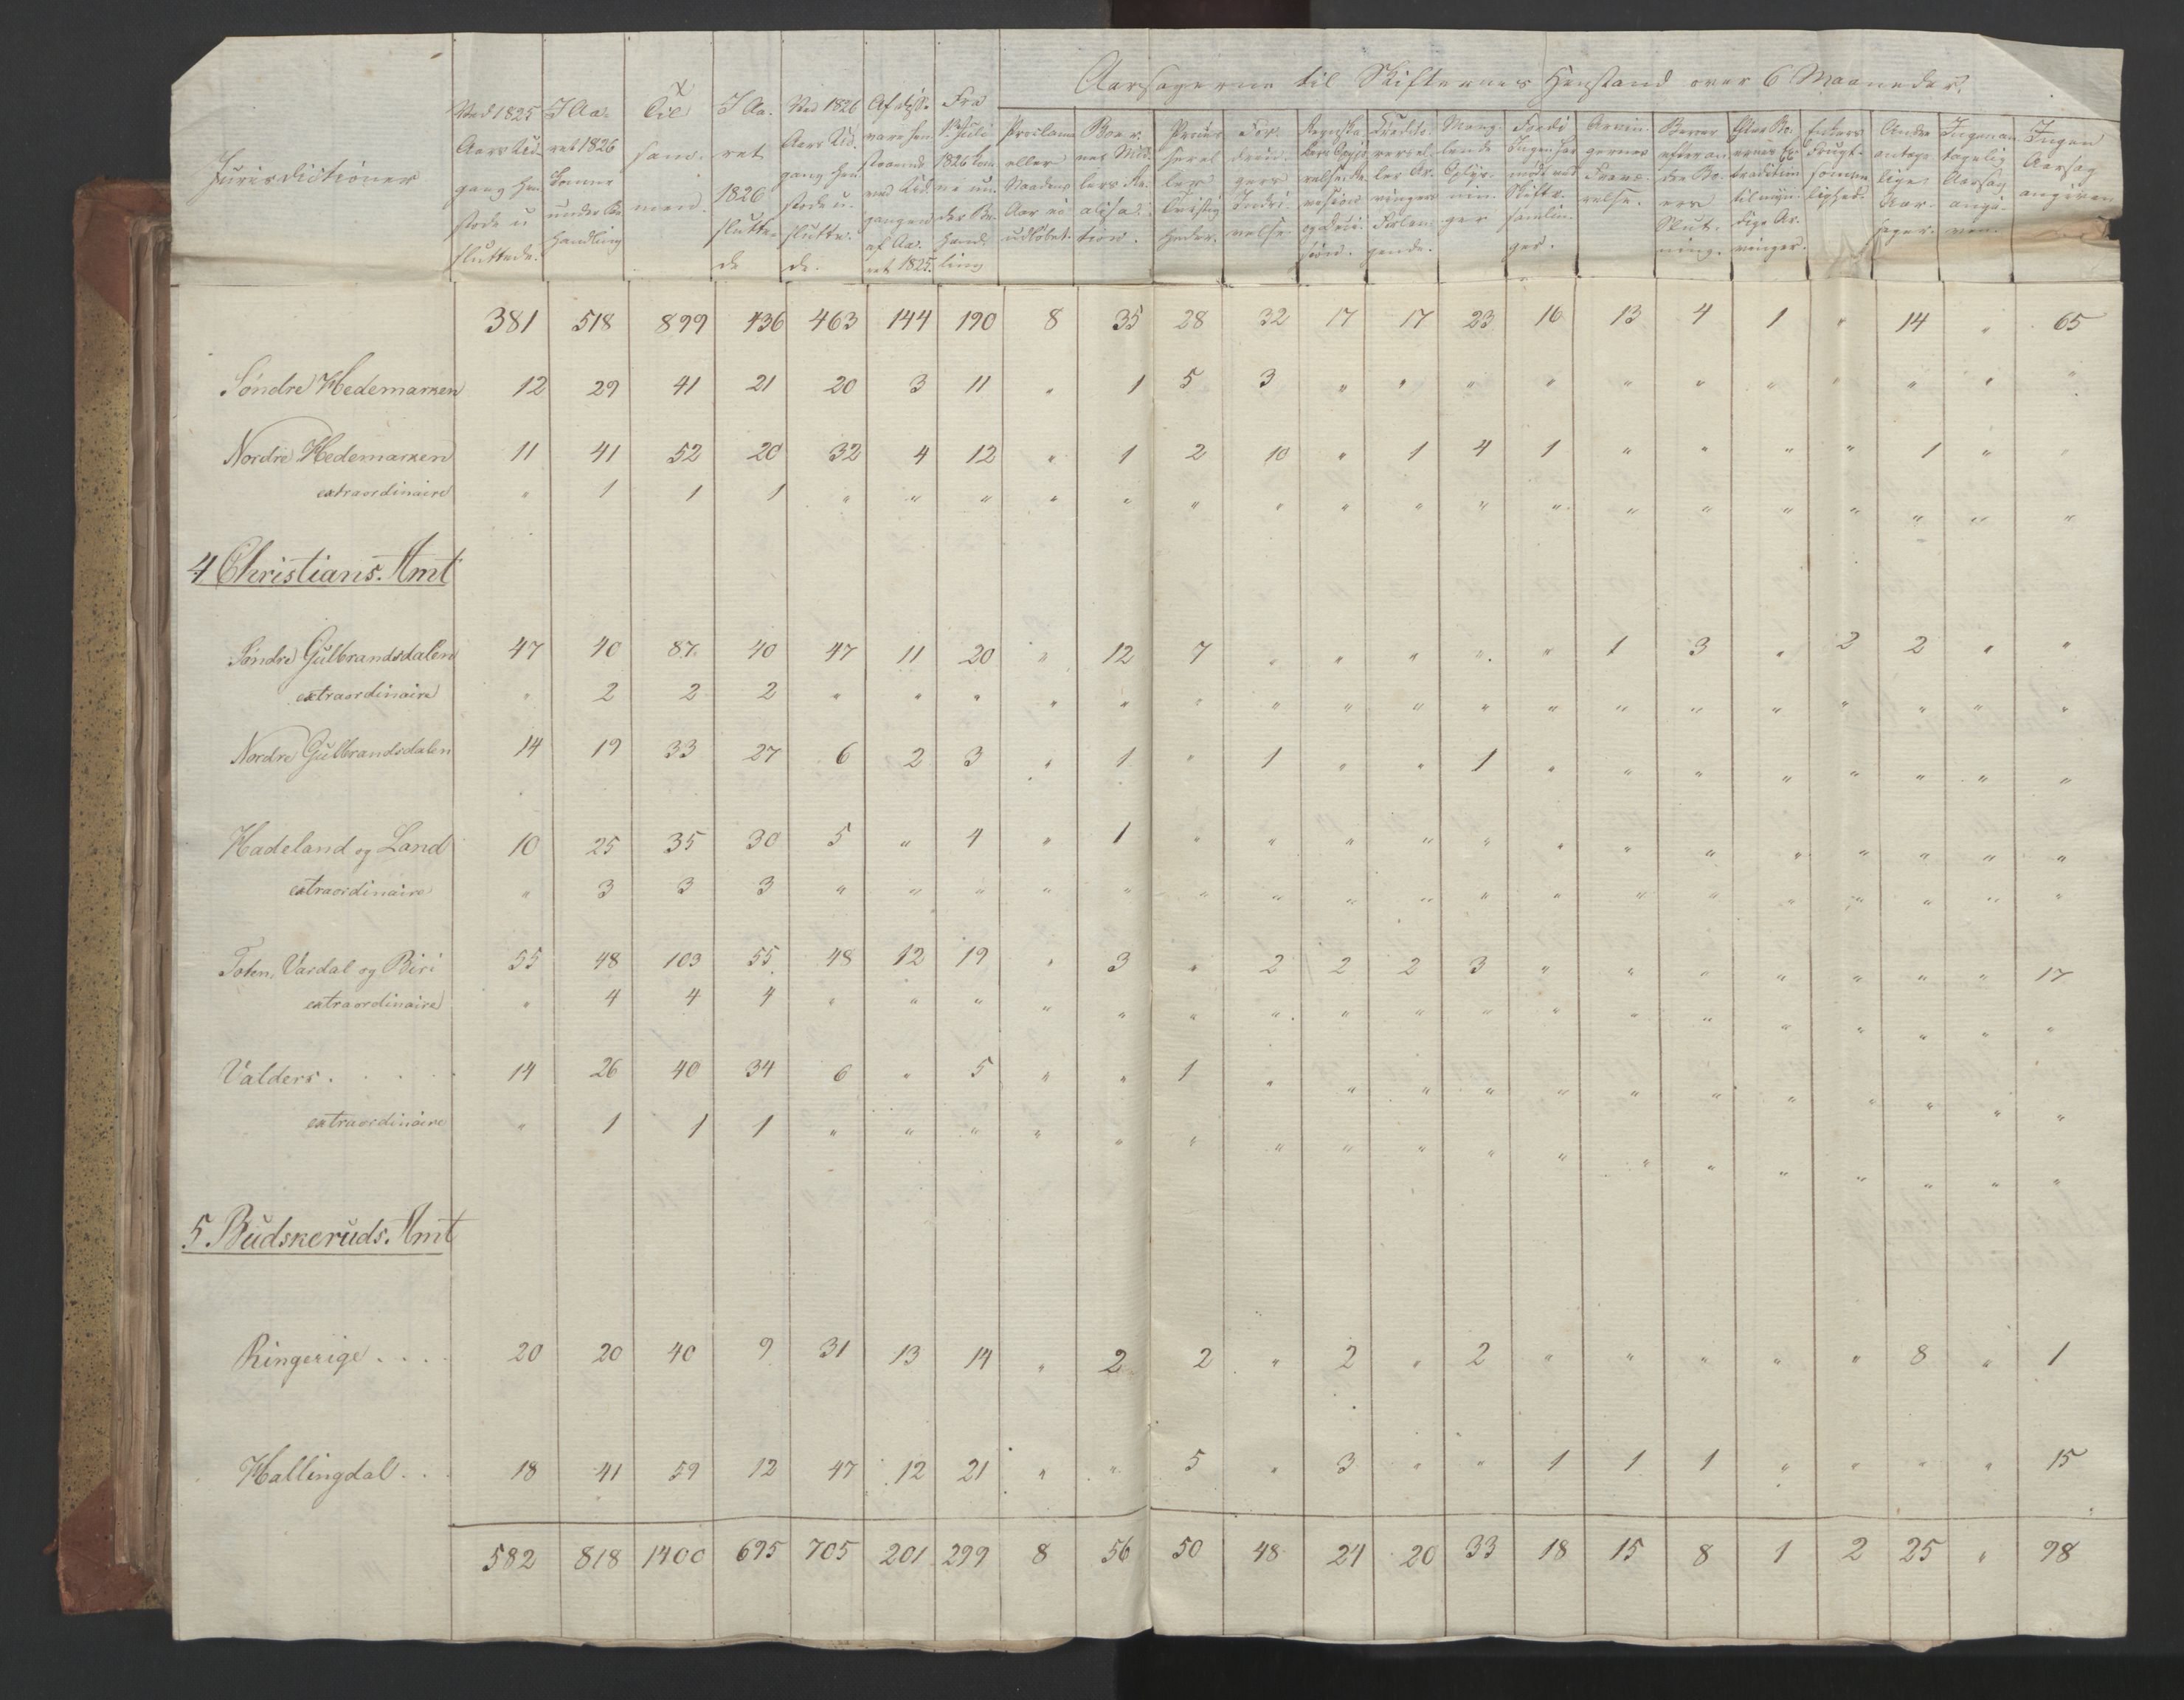 Aarsagerne til Skifternes Henstand over 6 Maaneder.
Jurisdictioner
Ved 1825 Aars Udgang henstode usluttede.
I Aaret 1826 komne under Behandling
Tilsammen.
I Aaret 1826 sluttede
Ved 1826 Aars Udgang henstode usluttede.
Fra 1ste Juli 1826 komne under Behandling
Proclama eller Naadens Aar ei udløbet.
Boernes Midlers Realisation.
Processer eller Tvistigheder.
Fordringers Inddrivelse
Manglende Oplysninger
Arvingernes Fraværelse.
Boers Slutning.
Enkers Frugtsommelighed.
Andre antagelige Aarsager.
Ingen antagelig Aarsag angiven.
Ingen Aarsag angiven
381 518 899 436 463 144 190 8 35 28 32 17 17 23 16 13 4 1 " 14 " 65
Søndre Hedemarken 12 29 41 21 20 3 11 " 1 5 3 " " " " " " " " " " "
Nordre Hedemarken 11 41 52 20 32 4 12 " 1 2 10 " 1 4 1 " " " " 1 " "
extraordinaire " 1 1 1 " " " " " " " " " " " " " " " " " "
4 Christians Amt
Søndre Gulbrandsdalen 47 40 87 40 47 11 20 " 12 7 " " " " " 1 3 " 2 2 " "
extraordinaire " 2 2 2 " " " " " " " " " " " " " " " " " "
Nordre Gulbrandsdalen 14 19 33 27 6 2 3 " 1 " 1 " " 1 " " " " " " " "
Hadeland og Land 10 25 35 30 5 " 4 " 1 " " " " " " " " " " " " "
extraordinaire " 3 3 3 " " " " " " " " " " " " " " " " " "
Toten, Vardal og Biri 55 48 103 55 48 12 19 " 3 " 2 2 2 3 " " " " " " " 17
extraordinaire " 4 4 4 " " " " " " " " " " " " " " " " " "
Valders . . . . 14 26 40 34 6 " 5 " " 1 " " " " " " " " " " " "
extraordinaire " 1 1 1 " " " " " " " " " " " " " " " " " "
5. Budskeruds Amt
Ringerige . . . . 20 20 40 9 31 13 14 " 2 2 " 2 " 2 " " " " " 8 " 1
Hallingdal . . . 18 41 59 12 47 12 21 " " 5 " 3 " " 1 1 1 " " " " 15
582 818 1400 695 705 201 299 8 56 50 48 24 20 33 18 15 8 1 2 25 " 98